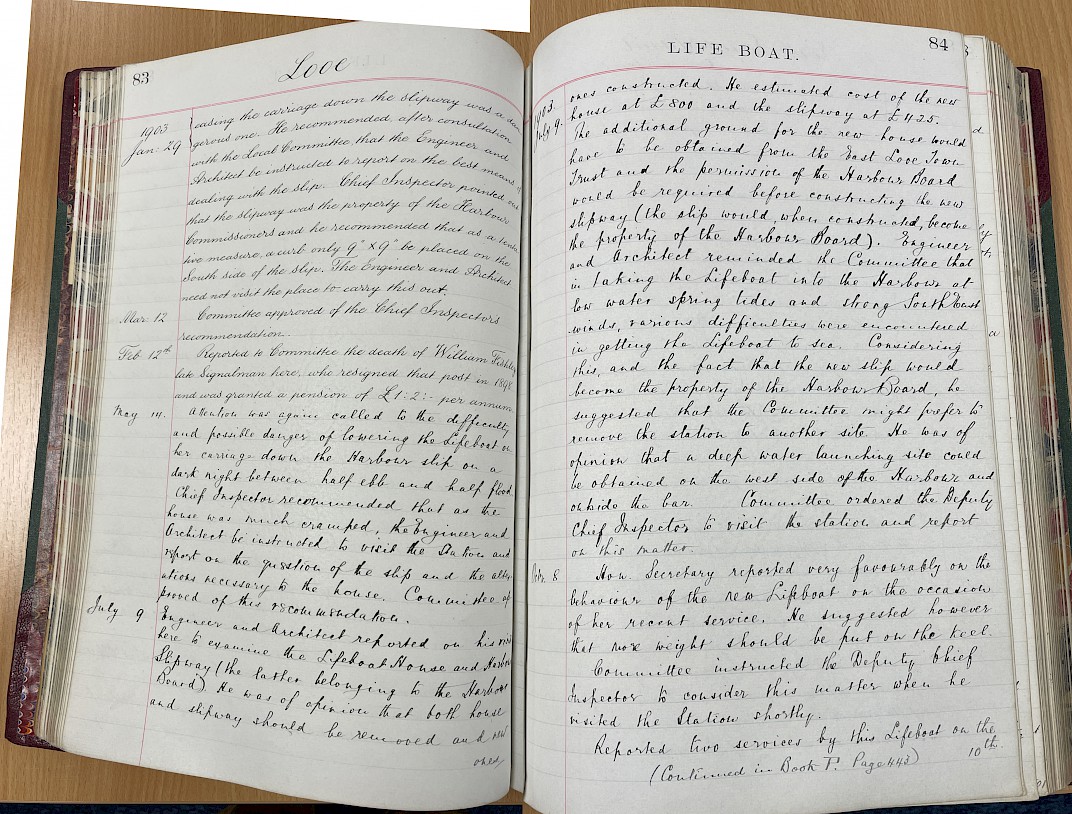 83
Looe
1903
Jan. 29
easing the carriage down the slipway was a dan
gerous one. He recommended, after consultation
with the Local Committee, that the Engineer and
Architect be instructed to report on the best means of
dealing with the slip. Chief Inspector pointed out
that the slipway was the property of the Harbour
Commissioners and he recommended that as a tenta
tive measure, a curb only 9" x 9" be placed on the
South side of the slip. The Engineer and Architect
need not visit the place to carry this out.
Mar. 12
Committee approved of the Chief Inspectors
recommendation.
Feb 12th
Reported to Committee the death of William
late Signalman here, who resigned that post in 1898
and was granted a pension of £1:2:- per annum
May 14.
Attention was again called to the difficulty
and possible danger of lowering the Lifeboat on
her carriage down the Harbour slip on a
dark night between half ebb and half flood.
Chief Inspector recommended that as the
house was much cramped, the Engineer and
Architect be instructed to visit the Station and
report on the question of the slip and the alter
ations necessary to the house. Committee ap
proved of this recommendation.
July 9
Engineer and Architect reported on his visit
here to examine the Lifeboat House and Harbour
Slipway (the latter belonging to the Harbour
Board). He was of opinion that both house
and slipway should be removed and new
ones,
LIFE BOAT.
84
1903.
July 9.
ones constructed. He estimated cost of the new
house at £800 and the slipway at £425.
The additional ground for the new house would
have to be obtained from the East Looe Town
Trust and the permission of the Harbour Board
would be required before constructing the new
slipway (the slip would, when constructed, become
the property of the Harbour Board). Engineer
and Architect reminded the Committee that
in taking the Lifeboat into the Harbour at
low water spring tides and strong South East
winds, various difficulties were encountered
in getting the Lifeboat to sea. Considering
this, and the fact that the new slip would
become the property of the Harbour Board, he
suggested that the Committee might prefer to
remove the station to another site. He was of
opinion that a deep water launching site could
be obtained on the west side of the Harbour and
outside the bar. Committee ordered the Deputy
Chief Inspector to visit the station and report
on this matter.
8
Hon. Secretary reported very favourably on the
behaviour of the new Lifeboat on the occasion
of her recent service. He suggested however
that more weight should be put on the keel.
Committee instructed the Deputy Chief
Inspector to consider this matter when he
visited the Station shortly.
Reported two services by this Lifeboat on the
10th
(Continued in Book F. Page 443)